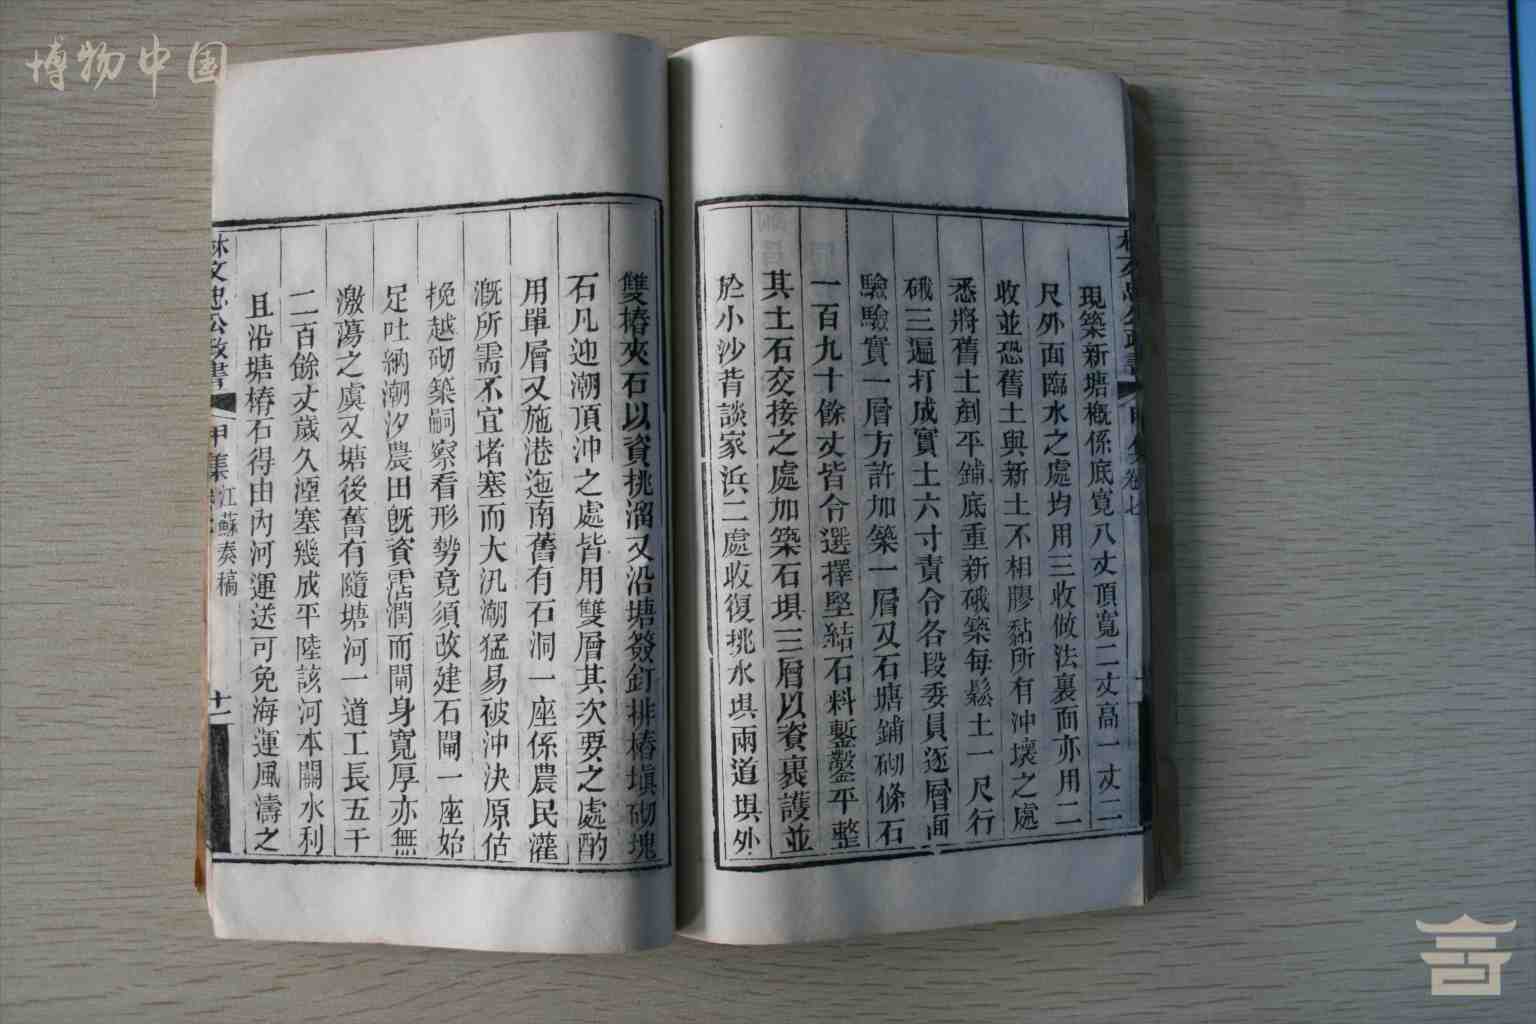 博物中国
現築新塘概係底寬八丈頂寬二丈高一丈二
尺外面臨水之處均用三收做法裏面亦用二
收並恐舊土與新土不相膠黏所有沖壞之處
悉將舊土剷平鋪底重新硪築每鬆土一尺行
硪三遍打成實土六寸責令各段委員逐層面
驗驗實一層方許加築一層又石塘鋪砌條石
一百九十餘丈皆令選擇堅結石料鏨鑿平整
其土石交接之處加築石垻三層以資裹護並
於小沙背談家浜二處收復挑水垻兩道垻外
雙樁夾石以資挑溜又沿塘簽釘排樁塡砌塊
石凡迎潮頂沖之處皆用雙層其次要之處酌
用單層又施港迤南舊有石洞一座係農民灌
漑所需不宜堵塞而大汛潮猛易被沖決原估
挽越砌築嗣察看形勢竟須改建石閘一座始
足吐納潮汐農田旣資霑潤而閘身寬厚亦無
激蕩之虞又塘後舊有隨塘河一道工長五千
二百餘丈歲久湮塞幾成平陸該河本關水利
且沿塘樁石得由內河運送可免海運風濤之
林文忠公政書
甲集
江蘇奏稿
十一